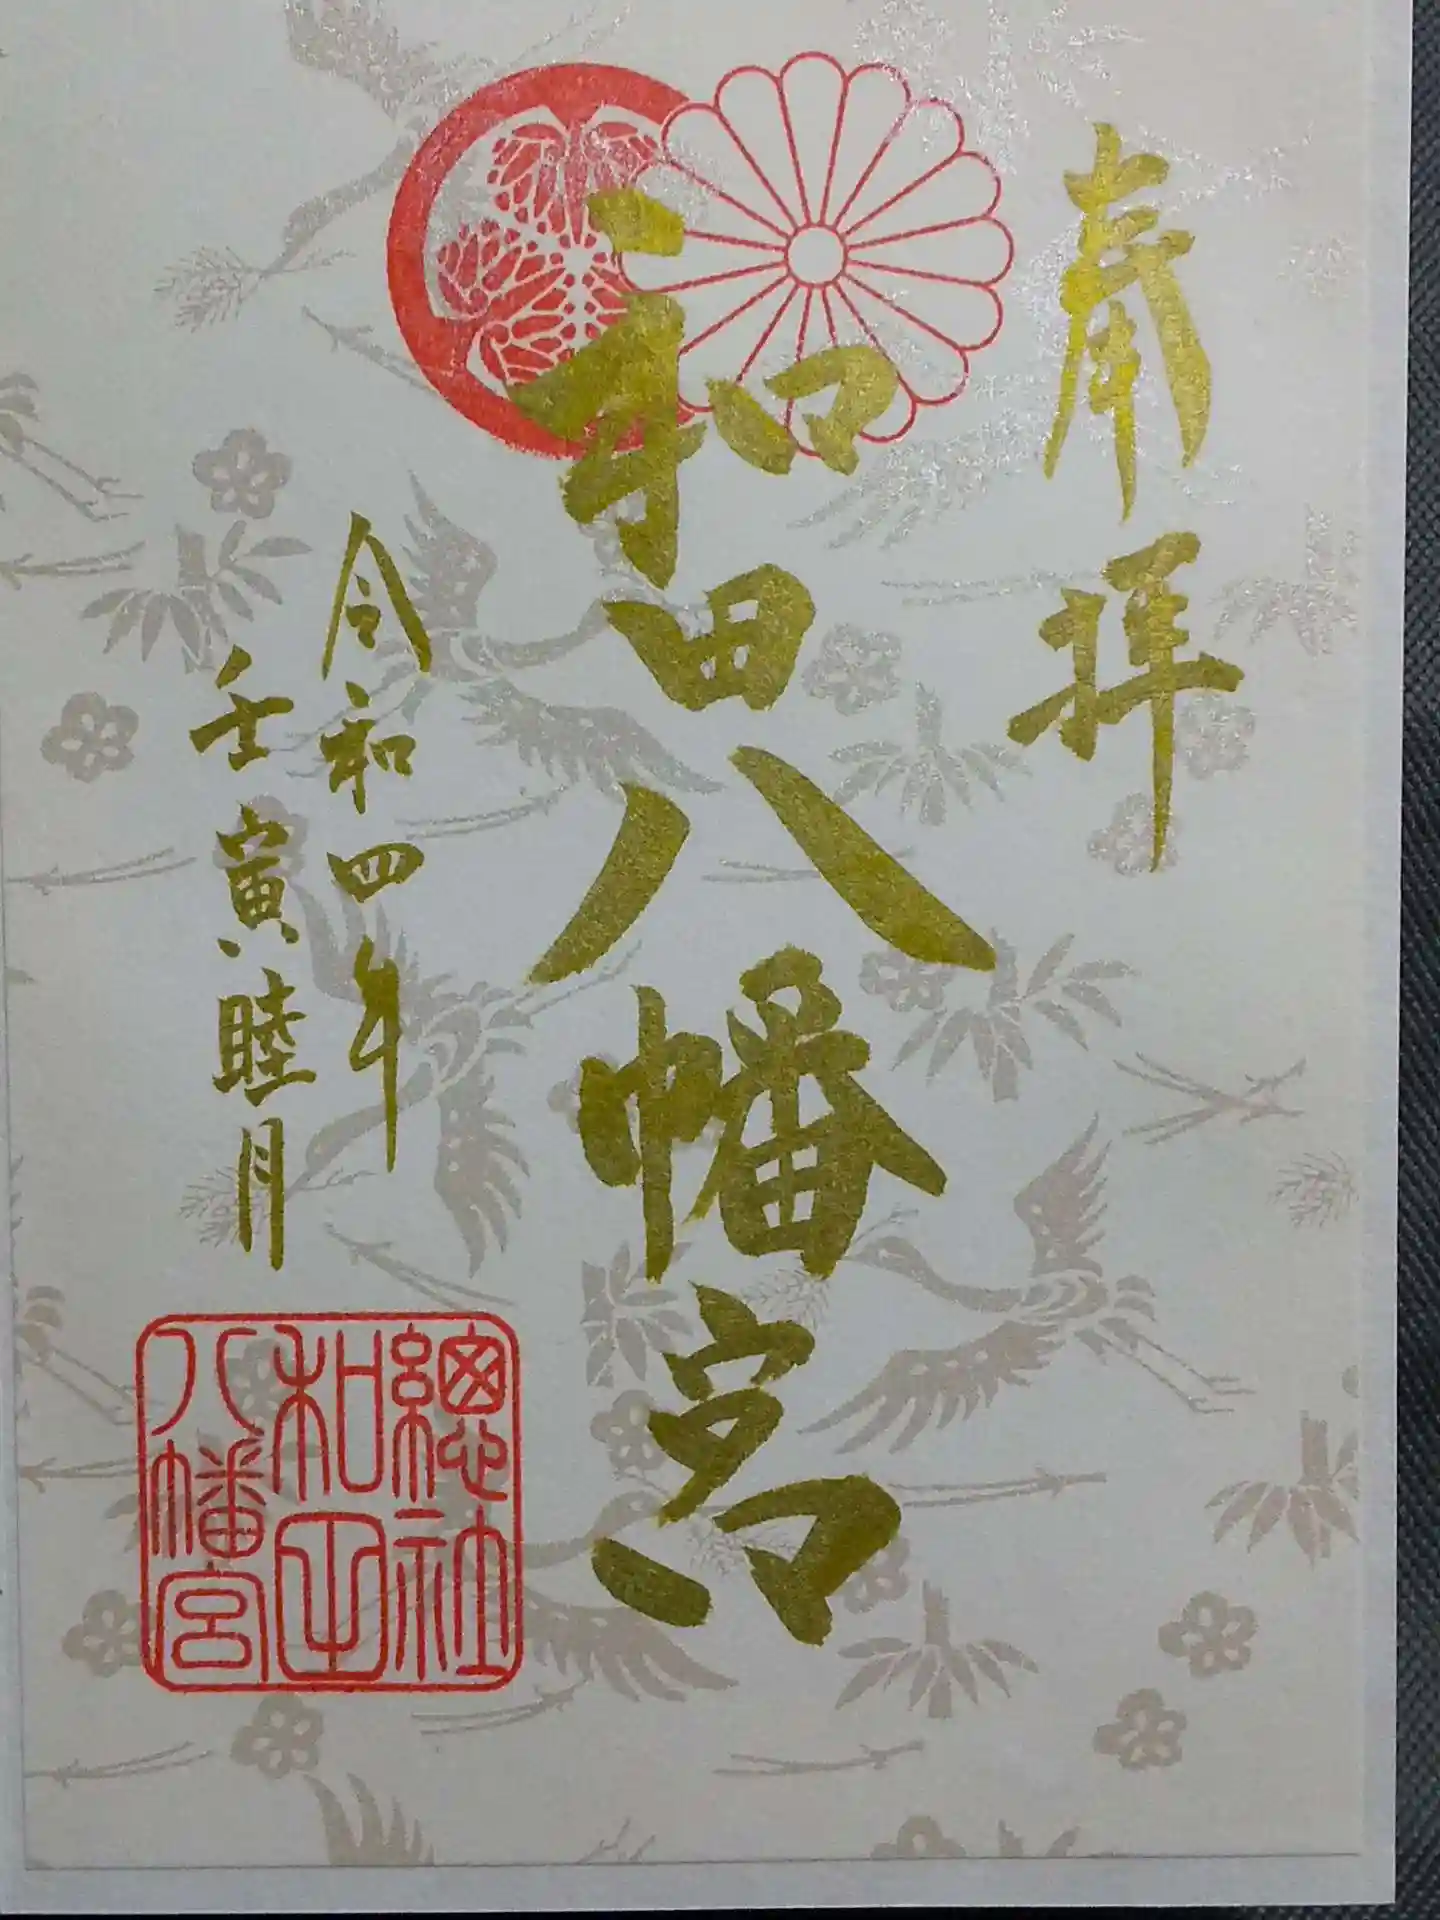 奉拝
和田八幡宮
令和四年
壬寅睦月
總社
和田
八幡宮